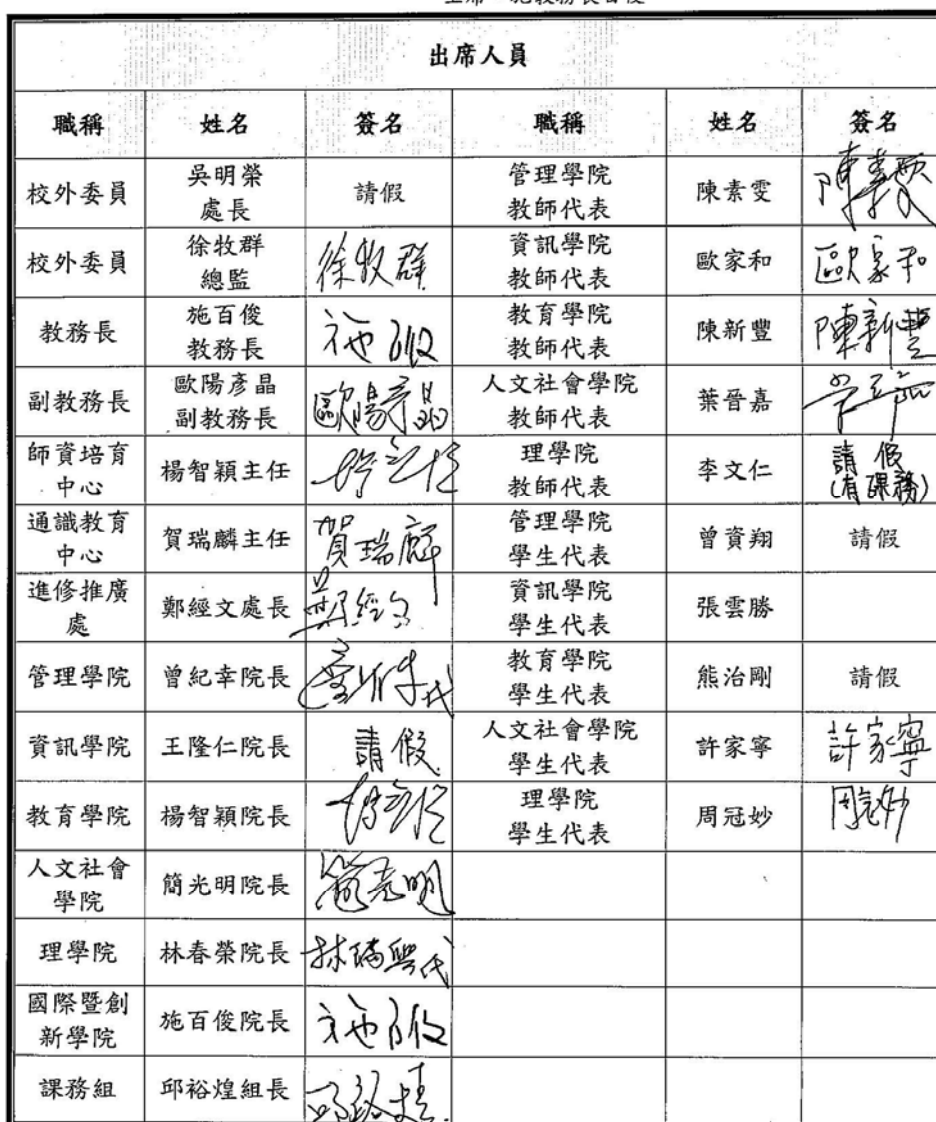 主席 施教務長百俊
出席人員
職稱 姓名 簽名 職稱 姓名 簽名
校外委員 吳明榮 處長 請假 管理學院 教師代表 陳素雯 陳素雯
校外委員 徐牧群 總監 徐牧群 資訊學院 教師代表 歐家和 歐家和
教務長 施百俊 教務長 施百俊 教育學院 教師代表 陳新豐 陳新豐
副教務長 歐陽彥晶 副教務長 歐陽彥晶 人文社會學院 教師代表 葉晉嘉
師資培育 中心 楊智穎主任 理學院 教師代表 李文仁 請假 (有課務)
通識教育 中心 賀瑞麟主任 賀瑞麟 管理學院 學生代表 曾資翔 請假
進修推廣 處 鄭經文處長 鄭經文 資訊學院 學生代表 張雲勝
管理學院 曾紀幸院長 教育學院 學生代表 熊治剛 請假
資訊學院 王隆仁院長 請假 人文社會學院 學生代表 許家寧 許家寧
教育學院 楊智穎院長 理學院 學生代表 周冠妙 周冠妙
人文社會 學院 簡光明院長 簡光明
理學院 林春榮院長
國際暨創 新學院 施百俊院長 施百俊
課務組 邱裕煌組長